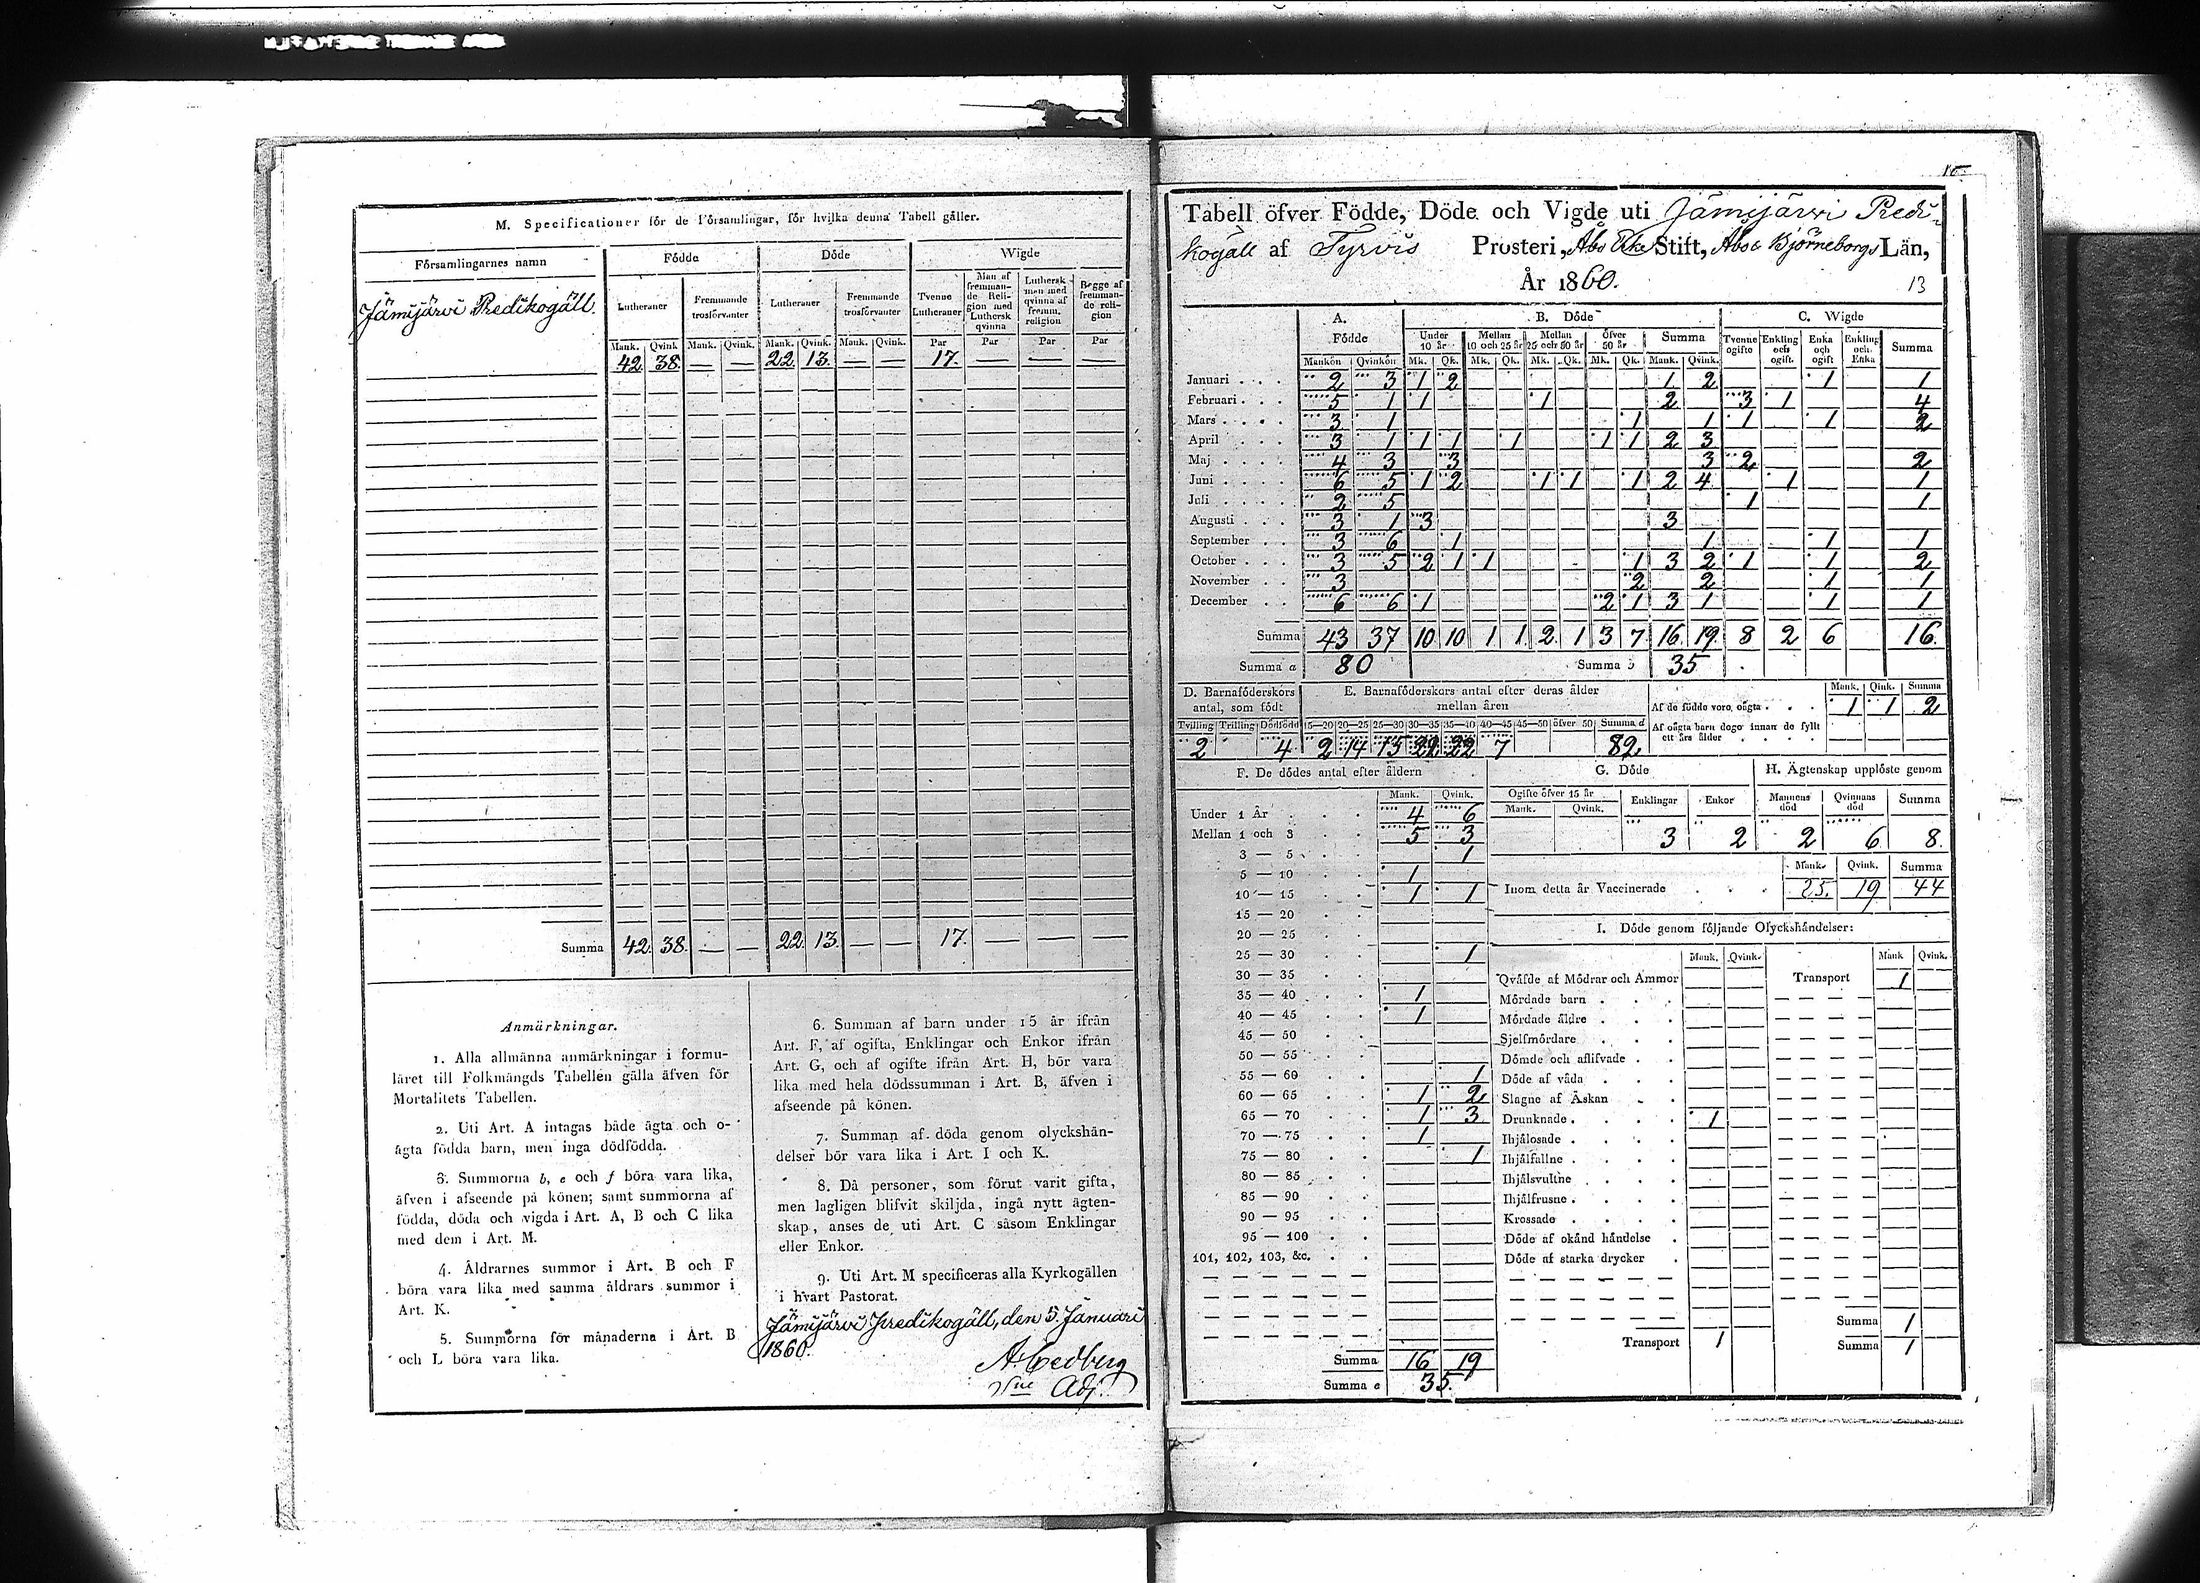 M. Specificationer för de Församlingar, för hvilka denna Tabell gäller.
Församlingarnes namn
Födde
Döde
Wigde
Lutheraner
Fremmande trosförvanter
Lutheraner
Fremmande trosförvanter
Tvenne Lutheraner
Man af fremmande Religion med Luthersk qvinna
Luthersk man med qvinna af fremm. religion
Begge af fremmande religion
Mank. Qvink. Mank. Qvink. Mank. Qvink. Mank. Qvink. Par Par Par Par
Jämijärvi Predikogäll. 42. 38. — — 22. 13. — — 17. — — —
Summa 42. 38. — — 22. 13. — — 17. — — —
Anmärkningar.
1. Alla allmänna anmärkningar i formu-
läret till Folkmängds Tabellen gälla äfven för
Mortalitets Tabellen.
2. Uti Art. A intagas både ägta och o-
ägta födda barn, men inga dödfödda.
3. Summorna b, e och f böra vara lika,
äfven i afseende på könen; samt summorna af
födda, döda och vigda i Art. A, B och C lika
med dem i Art. M.
4. Åldrarnes summor i Art. B och F
böra vara lika med samma åldrars summor i
Art. K.
5. Summorna för månaderna i Art. B
och L böra vara lika.
6. Summan af barn under 15 år ifrån
Art. F, af ogifta, Enklingar och Enkor ifrån
Art. G, och af ogifte ifrån Art. H, bör vara
lika med hela dödssumman i Art. B, äfven i
afseende på könen.
7. Summan af döda genom olyckshän-
delser bör vara lika i Art. I och K.
8. Då personer, som förut varit gifta,
men lagligen blifvit skiljda, ingå nytt ägten-
skap, anses de uti Art. C såsom Enklingar
eller Enkor.
9. Uti Art. M specificeras alla Kyrkogällen
i hvart Pastorat.
Jämijärvi Predikogäll, den 5. Januari
1860.
A. Cedberg
Adj.
Tabell öfver Födde, Döde och Vigde uti Jämijärvi Predi-
kogäll af Tyrvis Prosteri, Åbo Erke Stift, Åbo & Björneborgs Län,
År 1860. 13
A. Födde
B. Döde
C. Wigde
Mankön Qvinkön
Under 10 år
Mellan 10 och 25 år
Mellan 25 och 50 år
Öfver 50 år
Summa
Mk. Qk. Mk. Qk. Mk. Qk. Mk. Qk. Mank. Qvink.
Tvenne ogifte
Enkling och ogift.
Enka och ogift
Enkling och Enka
Summa
Januari 2 3 1 2 1 2 1 1
Februari 5 1 1 1 2 3 1 4
Mars 3 1 1 1 1 1 2
April 3 1 1 1 1 1 1 2 3
Maj 4 3 3 3 2 2
Juni 6 5 1 2 1 1 1 2 4 1 1
Juli 2 5 1 1
Augusti 3 1 3 3
September 3 6 1 1 1 1
October 3 5 2 1 1 1 3 2 1 1 2
November 3 2 2 1 1
December 6 6 1 2 1 3 1 1 1
Summa 43 37 10 10 1 1 2 1 3 7 16 19 8 2 6 16.
Summa a 80 Summa b 35
D. Barnaföderskors antal, som födt
Tvilling Trilling Dödfödd
2 4
E. Barnaföderskors antal efter deras ålder mellan åren
15—20 20—25 25—30 30—35 35—40 40—45 45—50 öfver 50 Summa d
2 14 15 22 22 7 82
Mank. Qink. Summa
Af de födde voro oägta 1 1 2
Af oägta barn dogo innan de fyllt
ett års ålder
F. De dödes antal efter åldern
Mank. Qvink.
Under 1 År 4 6
Mellan 1 och 3 5 3
3 — 5 1
5 — 10 1
10 — 15 1 1
15 — 20
20 — 25
25 — 30 1
30 — 35
35 — 40 1
40 — 45 1
45 — 50
50 — 55
55 — 60 1
60 — 65 1 2
65 — 70 1 3
70 — 75 1
75 — 80 1
80 — 85
85 — 90
90 — 95
95 — 100
101, 102, 103, &c.
Summa 16 19
Summa e 35.
G. Döde
Ogifte öfver 15 år
Mank. Qvink.
Enklingar Enkor
3 2
H. Ägtenskap upplöste genom
Mannens död Qvinnans död Summa
2 6 8.
Mank. Qvink. Summa
Inom detta år Vaccinerade 25. 19 44
I. Döde genom följande Olyckshändelser:
Mank. Qvink. Mank Qvink.
Qväfde af Mödrar och Ammor Transport 1
Mördade barn
Mördade äldre
Sjelfmördare
Dömde och aflifvade
Döde af våda
Slagne af Åskan
Drunknade 1
Ihjälosade
Ihjälfallne
Ihjälsvultne
Ihjälfrusne
Krossade
Döde af okänd händelse
Döde af starka drycker
Summa 1
Transport 1 Summa 1